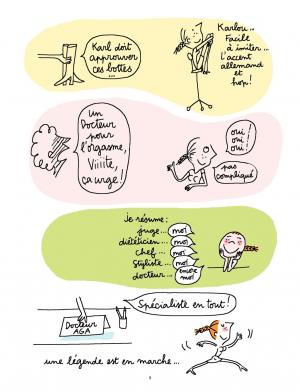 Karl doit
approuver
ces bottes...
Karlou...
Facile
à imiter...
l'accent
allemand
et
hop!
un
Docteur
pour
l'orgasme,
Viiiite,
ça urge!
oui
oui
oui!
pas
compliqué
je résume:
juge... moi
diététicien... moi
chef... moi
styliste... moi
docteur... encore
moi
Spécialiste en tout!
Docteur
AGA
une légende est en marche...